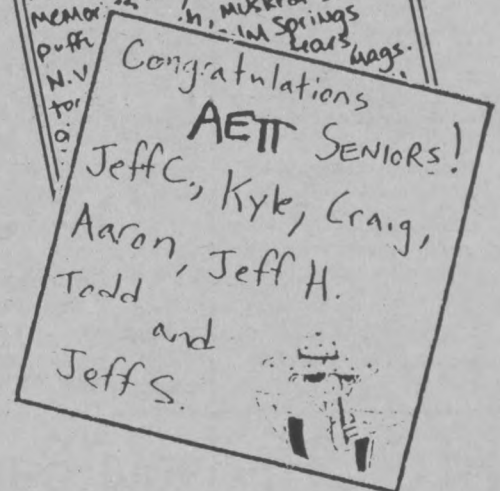 puffh
N.V
Springs
ears
Congratulations
AEΠ SENIORS!
Jeff C., Kyle, Craig,
Aaron, Jeff H.
Todd
and
Jeff S.